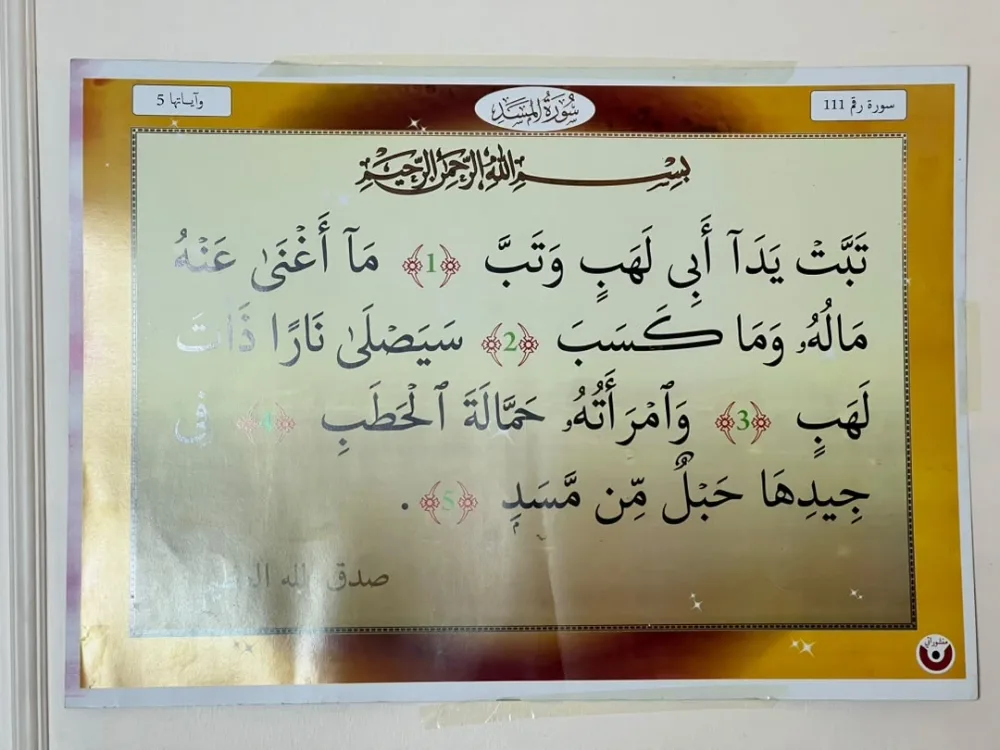 سورة رقم 111
سُورَةُ المَسَدِ
وآياتها 5
بِسْمِ اللَّهِ الرَّحْمَٰنِ الرَّحِيمِ
تَبَّتْ يَدَآ أَبِي لَهَبٍ وَتَبَّ ﴿1﴾ مَآ أَغْنَىٰ عَنْهُ
مَالُهُۥ وَمَا كَسَبَ ﴿2﴾ سَيَصْلَىٰ نَارًا ذَاتَ
لَهَبٍ ﴿3﴾ وَٱمْرَأَتُهُۥ حَمَّالَةَ ٱلْحَطَبِ ﴿4﴾ فِي
جِيدِهَا حَبْلٌ مِّن مَّسَدٍ ﴿5﴾ .
صدق الله العظيم